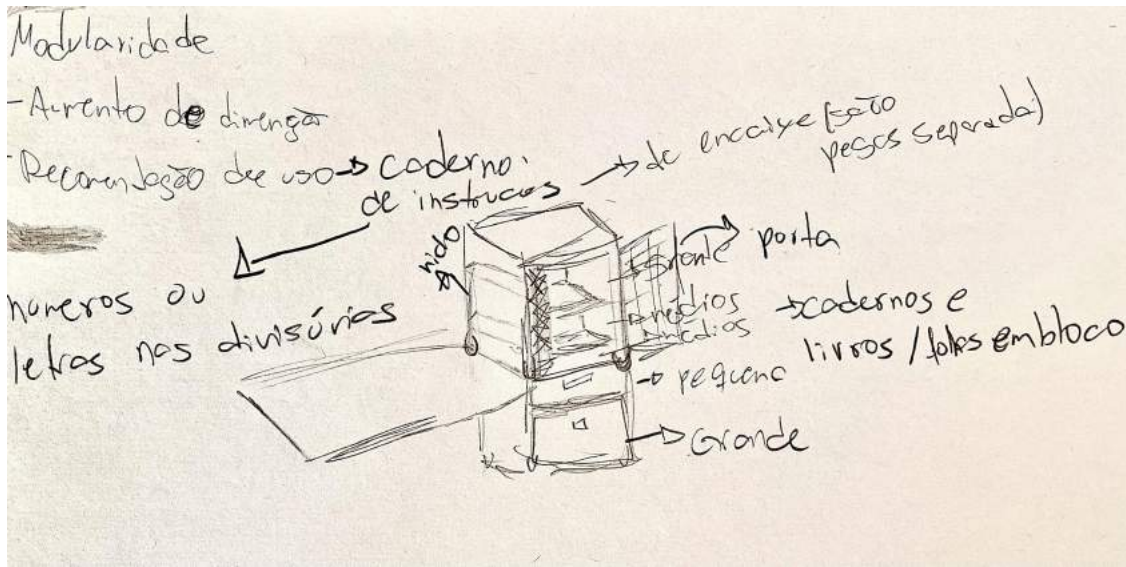 Modularidade
- Aumento de dimenção
- Recomendação de uso → caderno
de instrucoes
→ de encaixe (são
peças separada)
numeros ou
letras nas divisúrias
nido
Grande
porta
médios
médios
→ cadernos e
livros / folhas em bloco
→ pequeno
→ Grande